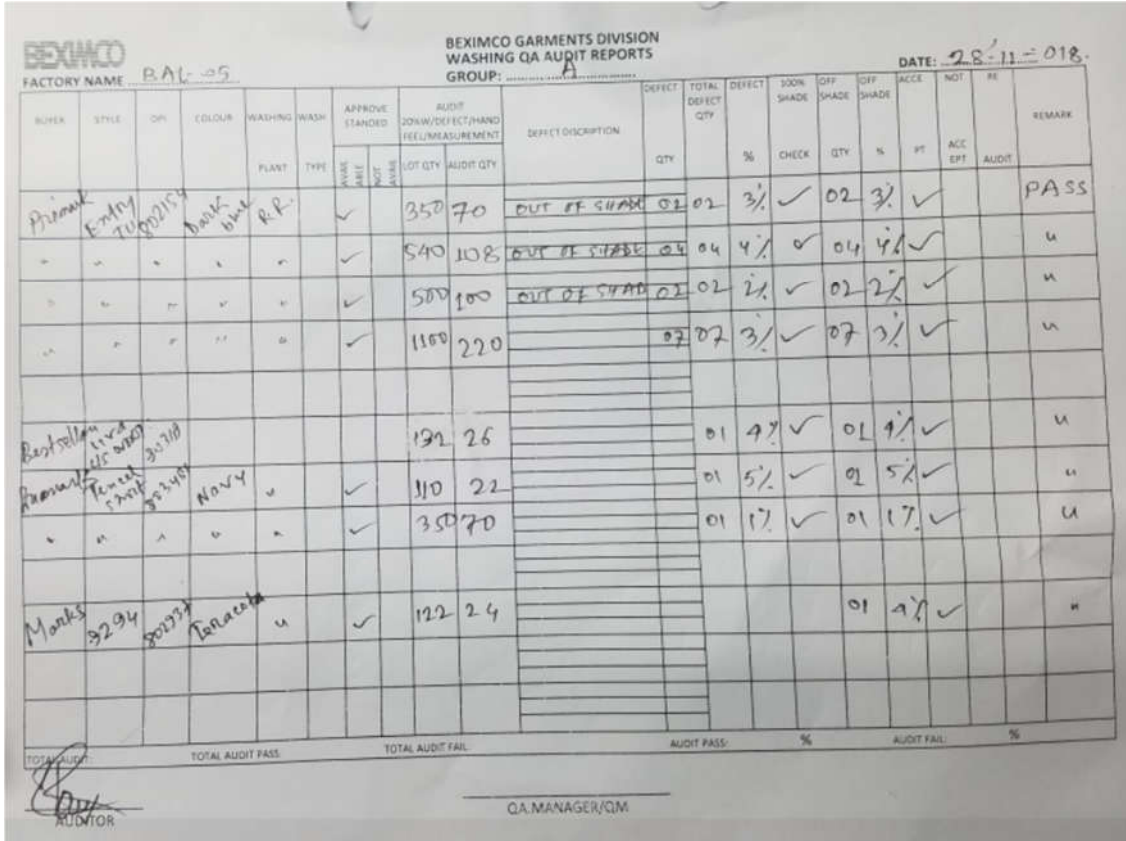 BEXIMCO
BEXIMCO GARMENTS DIVISION
WASHING QA AUDIT REPORTS
FACTORY NAME BAL-05 GROUP: A DATE: 28-11-018.
BUYER STYLE OPI COLOUR WASHING PLANT WASH TYPE APPROVE STANDED AVAILABLE NOT AVAI AUDIT 20%W/DEFECT/HAND FEEL/MEASUREMENT LOT QTY AUDIT QTY DEFECT DISCRIPTION DEFECT QTY TOTAL DEFECT QTY DEFECT % 100% SHADE CHECK OFF SHADE QTY OFF SHADE % ACCE PT NOT ACC EPT RE AUDIT REMARK
Entry 802154 Dark blue R.R. ✓ 350 70 OUT OF SHADE 02 02 3% ✓ 02 3% ✓ PASS
" " " " " ✓ 540 108 OUT OF SHADE 04 04 4% ✓ 04 4% ✓ "
" " " " " ✓ 500 100 OUT OF SHAD 02 02 2% ✓ 02 2% ✓ "
" " " " " ✓ 1100 220 07 07 3% ✓ 07 3% ✓ "
Bestseller 132 26 01 4% ✓ 01 4% ✓ "
Tencel Navy " ✓ 110 22 01 5% ✓ 5% ✓ "
" " " " " ✓ 350 70 01 1% ✓ 01 1% ✓ "
Marks 9294 802937 Teracota " ✓ 122 24 01 4% ✓ "
TOTAL AUDIT: TOTAL AUDIT PASS: TOTAL AUDIT FAIL: AUDIT PASS: % AUDIT FAIL: %
AUDITOR
QA.MANAGER/QM